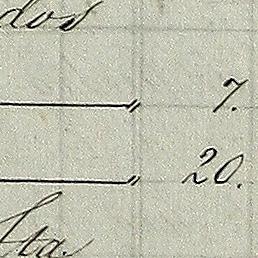 dos
〃 7.
〃 20.
lta.